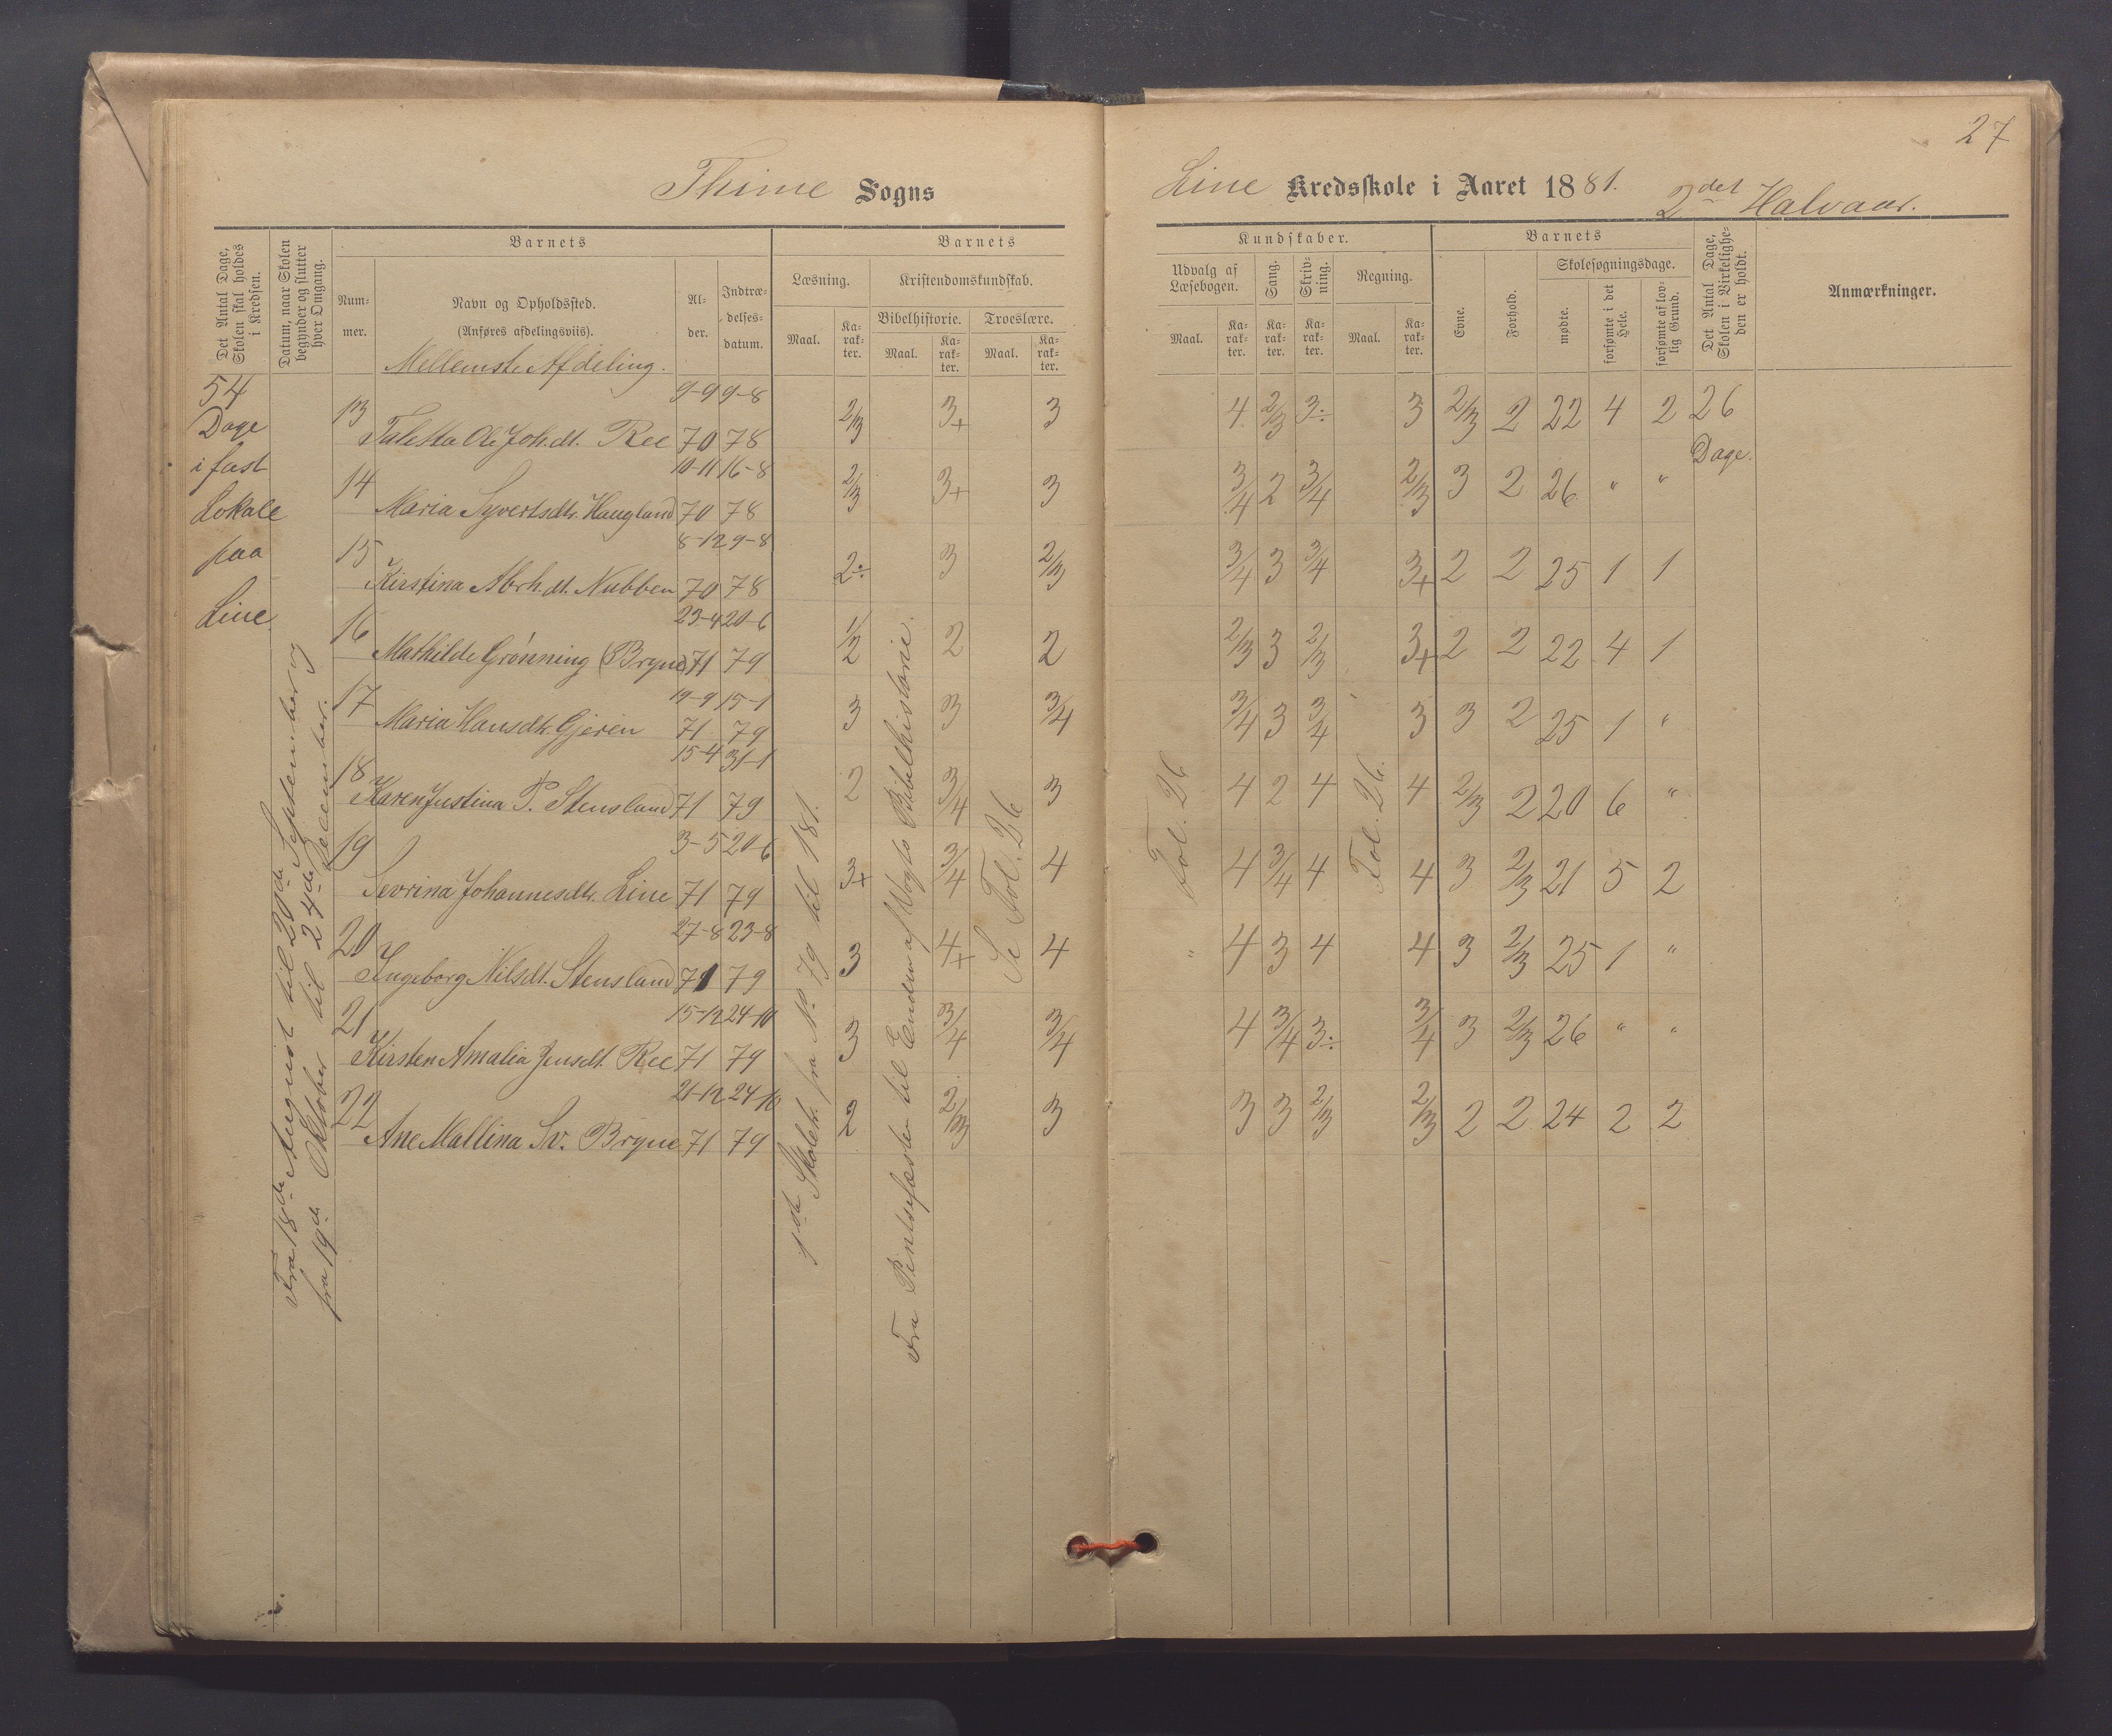 27
Thime Sogns
Line Kredsskole i Aaret 1881. 2det Halvaar.
Det Antal Dage, Skolen skal holdes i Kredsen.
Datum, naar Skolen begynder og slutter hver Omgang.
Barnets
Nummer.
Navn og Opholdssted.
(Anføres afdelingsviis).
Mellemste Afdeling.
Alder.
Indtrædelsesdatum.
Barnets
Læsning.
Maal.
Karakter.
Kristendomskundskab.
Bibelhistorie.
Maal.
Karakter.
Troeslære.
Maal.
Karakter.
Kundskaber.
Udvalg af Læsebogen.
Maal.
Karakter.
Sang.
Karakter.
Skrivning.
Karakter.
Regning.
Maal.
Karakter.
Barnets
Evne.
Forhold.
Skolesøgningsdage.
mødte.
forsømte i det Hele.
forsømte af lovlig Grund.
Det Antal Dage, Skolen i Virkeligheden er holdt.
Anmærkninger.
54 Dage i fast Lokale paa Line.
Fra 18de August til 20de September og
fra 19de Oktober til 24de Desember.
1ste Skoletr. fra No 79 til 181.
Fra Pintsefæsten til Enden af Vogts Bibelhistorie.
Se Fol. 26
Fol. 26
"
Fol. 26.
26 Dage.
13 Taletta Ole Joh.dt. Ree 9-9 70 9-8 78 2/3 3+ 3 4 2/3 3÷ 3 2/3 2 22 4 2
14 Maria Syvertsdtr. Haugland 10-11 70 16-8 78 2/3 3+ 3 3/4 2 3/4 2/3 3 2 26 " "
15 Kirstina Abrh.dt. Nubben 8-12 70 9-8 78 2÷ 3 2/3 3/4 3 3/4 3+ 2 2 25 1 1
16 Mathilde Grønning (Bryne) 23-4 71 20-6 79 1/2 2 2 2/3 3 2/3 3+ 2 2 22 4 1
17 Maria Hansdtr. Gjeren 19-9 71 15-1 79 3 3 3/4 3/4 3 3/4 3 3 2 25 1 "
18 Karen Justina P. Stensland 15-4 71 31-1 79 2 3/4 3 4 2 4 4 2/3 2 20 6 "
19 Sevrina Johannesdtr. Line 3-5 71 20-6 79 3+ 3/4 4 4 3/4 4 4 3 2/3 21 5 2
20 Ingeborg Nilsdt. Stensland 27-8 71 23-8 79 3 4+ 4 4 3 4 4 3 2/3 25 1 "
21 Kirsten Amalia Jensdt. Ree 15-12 71 24-10 79 3 3/4 3/4 4 3/4 3÷ 3/4 3 2/3 26 " "
22 Ane Mallina Sv. Bryne 21-12 71 24-10 79 2 2/3 3 3 3 2/3 2/3 2 2 24 2 2